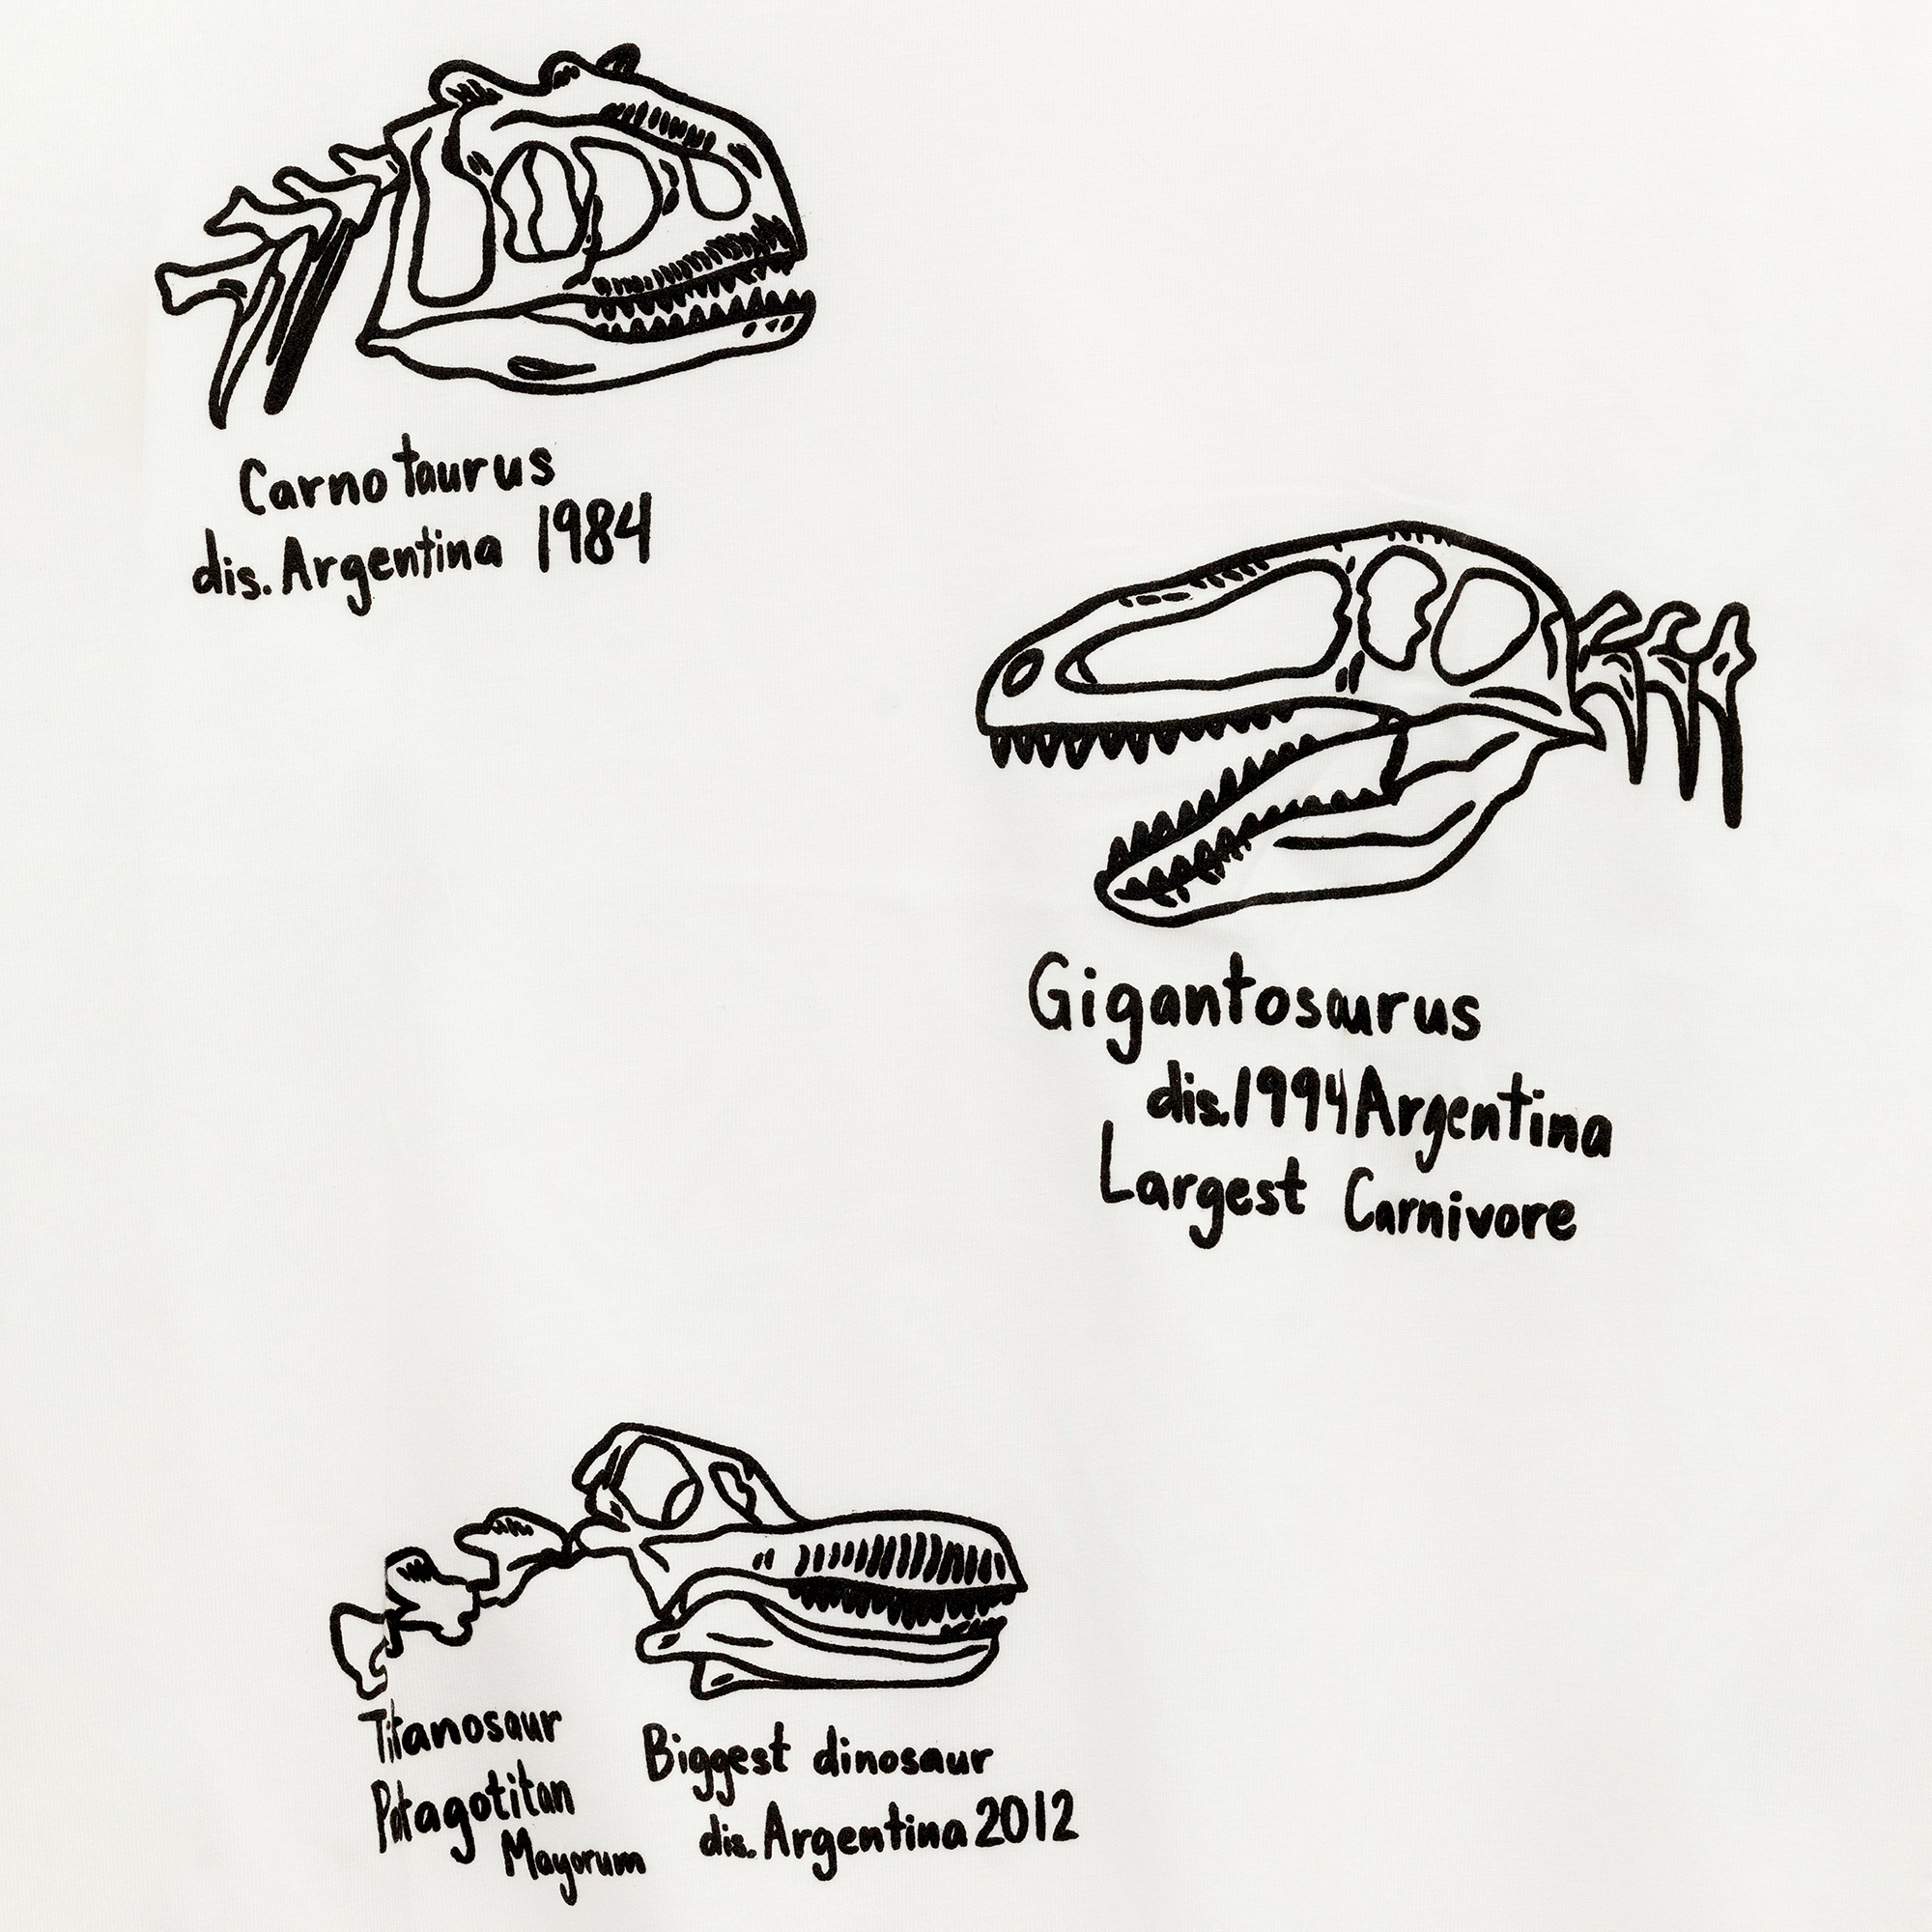 Carnotaurus
dis. Argentina 1984
Gigantosaurus
dis. 1994 Argentina
Largest Carnivore
Titanosaur
Patagotitan
Mayorum
Biggest dinosaur
dis. Argentina 2012